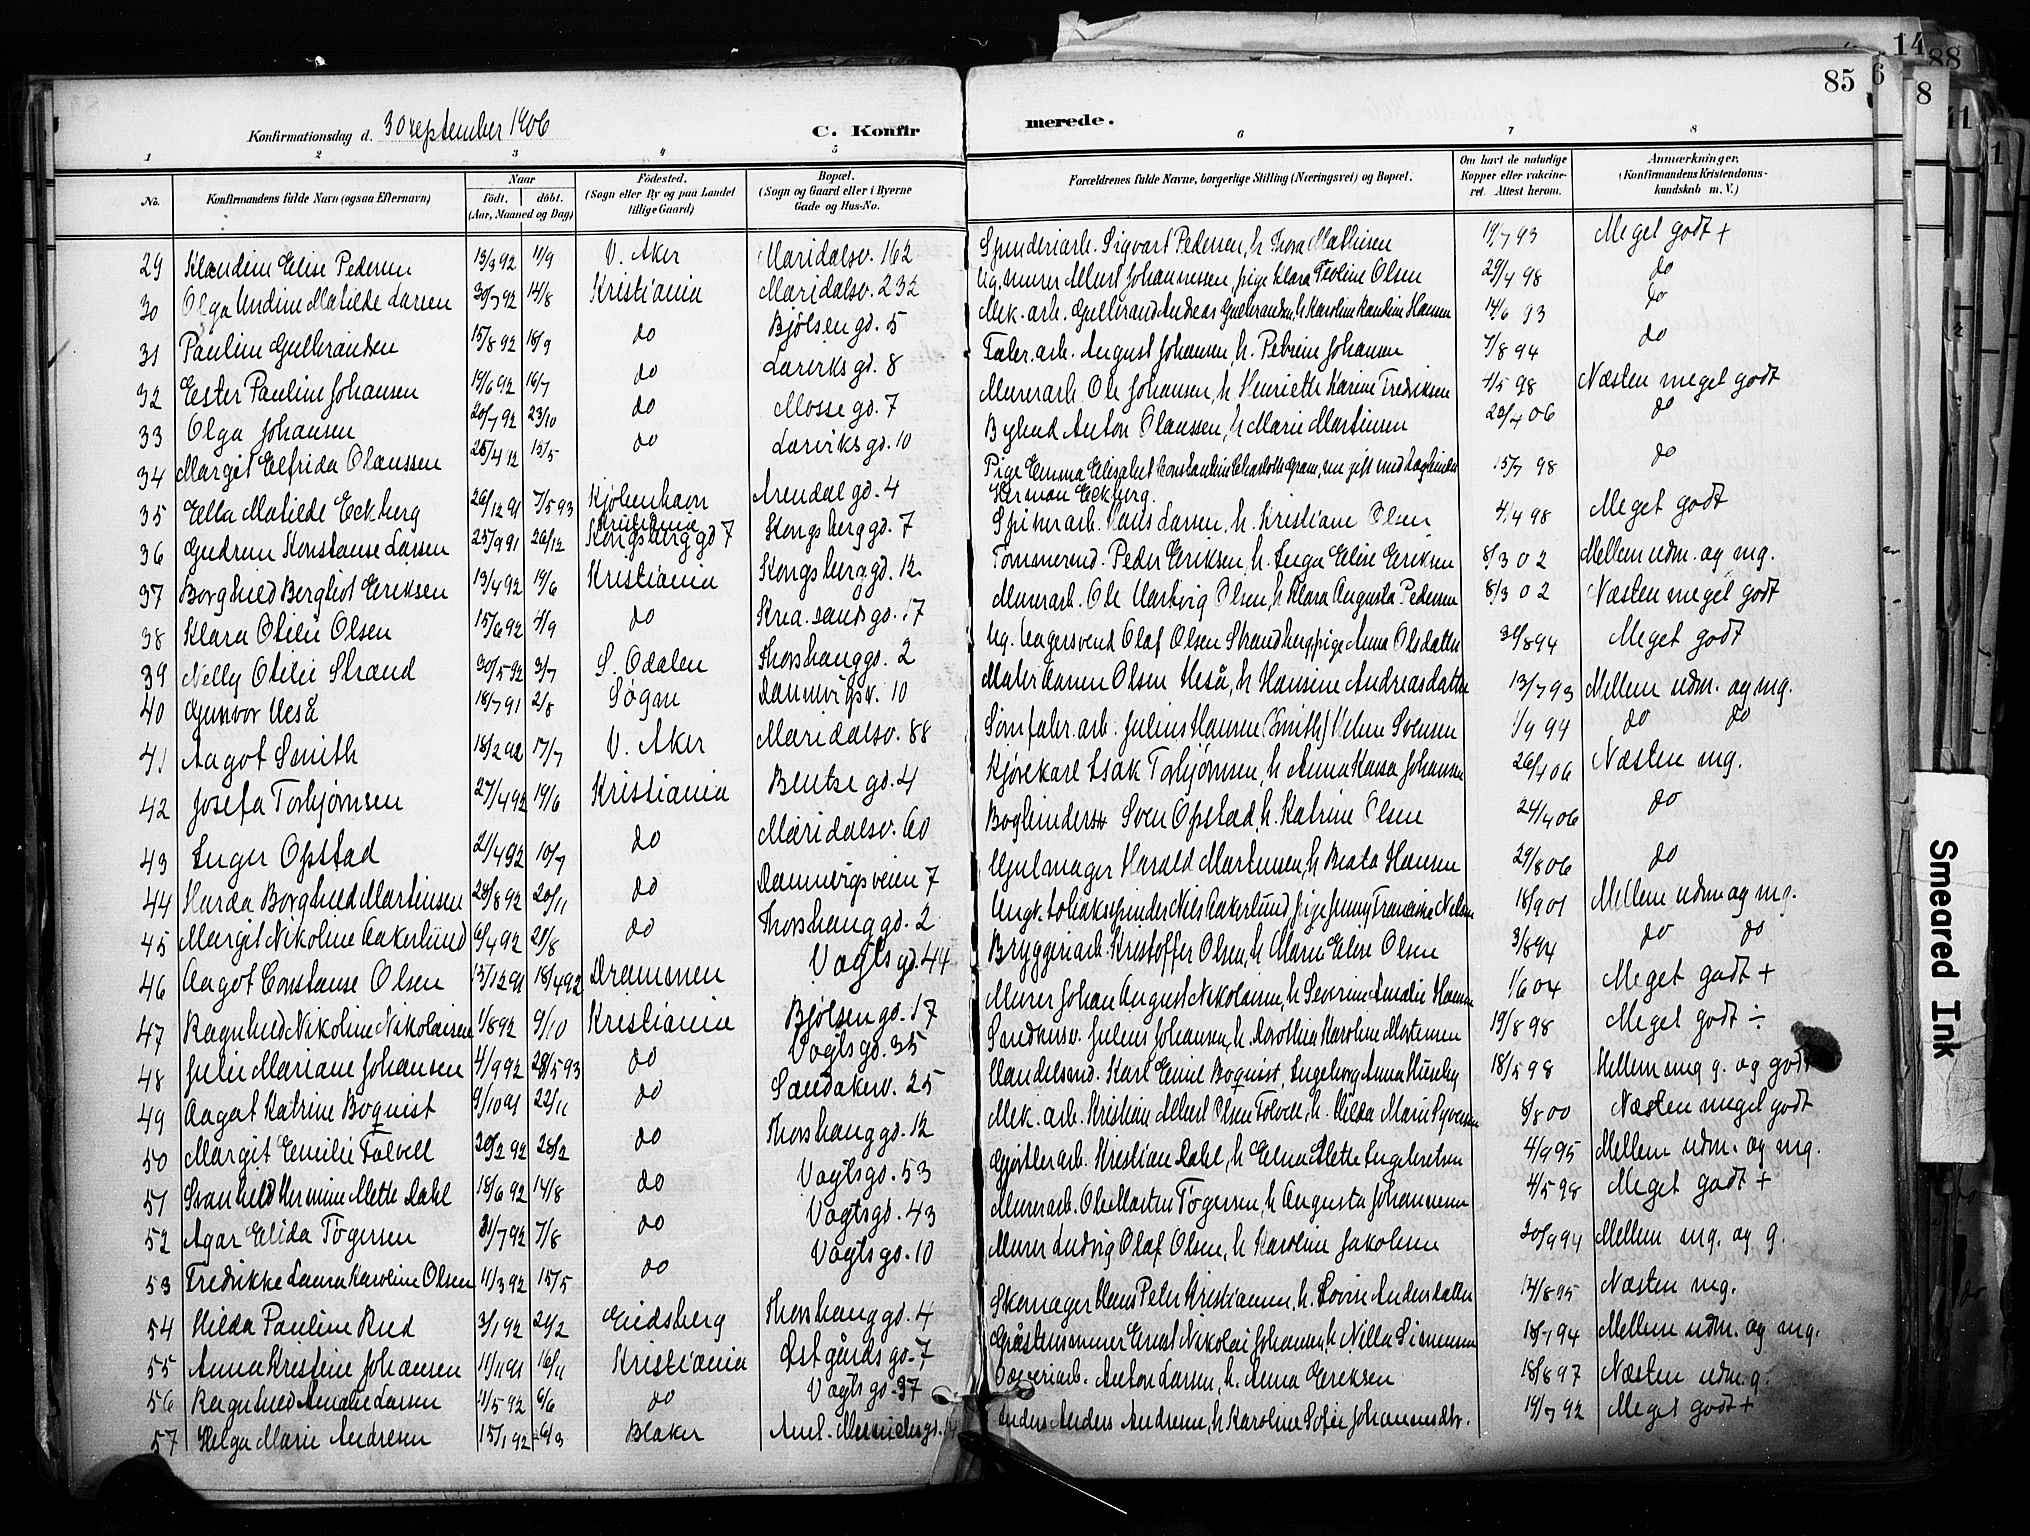 14
88
85
6
8
Konfirmationsdag d. 30 september 1906
C. Konfirmerede.
1 2 3 4 5 6 7 8
No. Konfirmandens fulde Navn (ogsaa Efternavn) Naar født. døbt. (Aar, Maaned og Dag) Fødested. (Sogn eller By og paa Landet tillige Gaard) Bopæl. (Sogn og Gaard eller i Byerne Gade og Hus-No. Forældrenes fulde Navne, borgerlige Stilling (Næringsvei) og Bopæl. Om havt de naturlige Kopper eller vakcineret. Attest herom. Anmærkninger. (Konfirmandens Kristendomskundskab m. V.)
29 Klaudine Elise Pedersen 13/3 92 11/9 V. Aker Maridalsv. 162 Spinderiarb. Sigvart Pedersen, h. Thora Mathisen 19/7 93 Meget godt +
30 Olga Undine Matilde Larsen 30/7 92 14/8 Kristiania Maridalsv. 232 Ug. murer Albert Johannessen, pige Klara Teoline Olsen 29/4 98 do
31 Pauline Gulbrandsen 15/8 92 18/9 do Bjølsengd. 5 Mek. arb. Gulbrand Andreas Gulbrandsen, h. Karoline Hansen 14/6 93 do
32 Ester Pauline Johansen 19/6 92 16/7 do Larviksgd. 8 Fabr. arb. August Johansen, h. Petrine Johansen 7/8 94 do
33 Olga Johansen 20/7 92 23/10 do Mossegd. 7 Murerarb. Ole Johansen, h. Henriette Karine Fredriksen 4/5 98 Næsten meget godt
34 Margit Elfrida Olaussen 25/4 92 15/5 do Larviksgd. 10 Bybud Anton Olaussen, h. Marie Martinsen 23/4 06 do
35 Ella Matilde Eckberg 26/12 91 7/5 93 Kjøbenhavn Arendalgd. 4 Pige Emma Elisabet Konstantine Charlotte Gram, nu gift med Herman Eckberg. 15/7 98 do
36 Gudrun Konstanse Larsen 25/9 91 26/12 Kristiania Kongsberggd 7 Kongsberggd. 7 Spikerarb. Hans Larsen, h. Kristiane Olsen 4/4 98 Meget godt
37 Borghild Bergliot Eriksen 13/4 92 19/6 Kristiania Kongsberggd. 12 Tømmermd. Peder Eriksen, h. Inga Elise Eriksen 8/3 02 Mellem udm. og mg.
38 Klara Otelie Olsen 15/6 92 4/9 do Kra.sandsgd. 17 Murerarb. Ole Hartvig Olsen, h. Klara Augusta Pedersen 8/3 02 Næsten meget godt
39 Nelly Otilie Strand 30/5 92 3/7 S. Odalen Thorshauggd. 2 Ug. bagersvend Olaf Olsen Strandberg, pige Anna Olsdatter 30/8 94 Meget godt
40 Gunvor Heså 18/7 91 2/8 Søgne Dannevigsv. 10 Maler Aanen Olsen Heså, h. Hansine Andreasdatter 13/7 93 Mellem udm. og mg.
41 Aagot Smith 18/2 92 17/7 V. Aker Maridalsv. 88 Sømfabr. arb. Julius Hansen (Smith) Helene Svensen 1/9 94 do do
42 Josefa Torbjørnsen 27/4 92 19/6 Kristiania Bentsegd. 4 Kjørekarl Isak Torbjørnsen, h. Anna Hansa Johansen 26/4 06 Næsten mg.
43 Inger Opstad 21/4 92 10/7 do Maridalsv. 60 Bogbinder Sven Opstad, h. Katrine Olsen 24/4 06 do
44 Harda Borghild Martinsen 28/8 92 20/11 do Dannevigsveien 7 Hjulmager Harald Martinsen, h. Beata Hansen 29/8 06 do
45 Margit Nikoline Aakerlund 6/4 92 21/8 do Thorshauggd. 2 Ungk. tobakspinder Nils Aakerlund, pige Jenny Franciske Nilsen 18/9 01 Mellem udm og mg.
46 Aagot Constanse Olsen 13/12 91 18/4 92 Drammen Vogtsgd. 44 Bryggeriarb. Kristoffer Olsen, h. Maren Elise Olsen 3/8 94 do do
47 Ragnhild Nikoline Nikolaisen 1/8 92 9/10 Kristiania Bjølsengd. 17 Murer Johan August Nikolaisen, h. Severine Amalie Hansen 1/6 04 Meget godt +
48 Julie Mariane Johansen 4/9 92 28/5 93 do Vogtsgd. 35 Julius Johansen, h. Dorothea Karoline Mortensen 19/8 98 Meget godt ÷
49 Aagot Katrine Boquist 9/10 91 22/11 do Sandakerv. 25 Handelsmd. Karl Emil Boquist, Ingeborg Anna Huseby 18/5 98 Mellem mg g. og godt
50 Margit Emilie Tolvell 20/2 92 28/2 do Thorshauggd. 12 Mek. arb. Kristian Albert Olsen Tolvell, h. Hilda Marie Syversen 8/8 00 Næsten meget godt
51 Svanhild Hermine Mette Dahl 18/6 92 14/8 do Vogtsgd. 53 Gjørtlerarb. Kristian Dahl, h. Elena Mette Ingebretsen 4/9 95 Mellem udm. og mg.
52 Agar Elida Togersen 31/7 92 7/8 do Vogtsgd. 43 Murerarb. Ole Martin Togersen, h. Augusta Johannessen 4/5 98 Meget godt +
53 Fredrikke Laura Karoline Olsen 11/3 92 15/5 do Vogtsgd. 10 Murer Ludvig Olaf Olsen, h. Karoline Jakobsen 20/9 94 Mellem mg. og g.
54 Hilda Pauline Rud 3/1 92 21/2 Eidsberg Thorshauggd. 4 Skomager Hans Peter Kristiansen, h. Lovise Andersdatter 14/8 95 Næsten mg.
55 Anna Kristine Johansen 11/11 91 16/11 Kristiania Østgårdsgd. 7 Gråstensmurer Ernst Nikolai Johansen, h. Nilla Simensen 18/7 94 Mellem udm. og mg.
56 Ragnhild Amalie Larsen 11/5 92 6/6 do Vogtsgd. 37 Anton Larsen, h. Anna Eriksen 18/8 97 Næsten udm. g.
57 Helga Marie Andresen 15/1 92 6/3 Blaker Aml. Anders Andresen, h. Karoline Sofie Johannesdtr. 19/7 92 Meget godt +
Smeared Ink